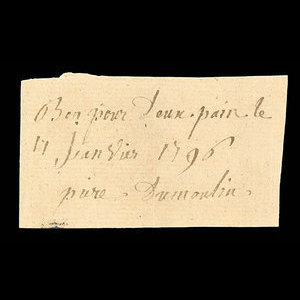 Bon pour Deux pain le
17 Janvier 1796
pire Dumoulin